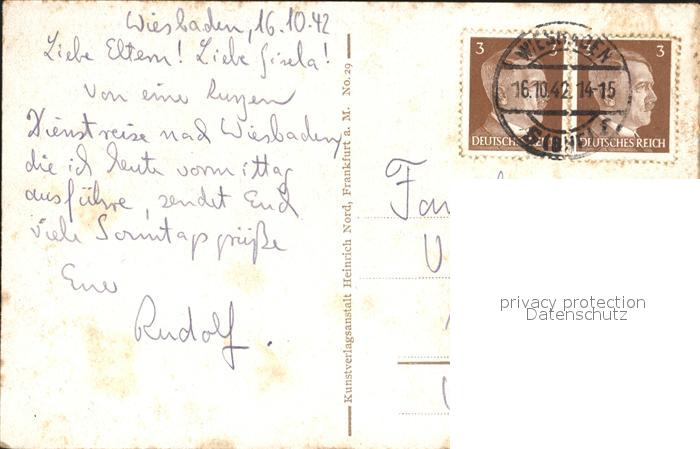 Wiesbaden, 16.10.42
Liebe Eltern! Liebe Gisela!
Von einer kurzen
Dienstreise nach Wiesbaden,
die ich heute vormittag
ausführe, sendet Euch
viele Sonntagsgrüße
Euer
Rudolf.
Kunstverlagsanstalt Heinrich Nord, Frankfurt a. M. No. 29
3
3
WIESBADEN
16.10.42 14-15
DEUTSCHES REICH
DEUTSCHES REICH
Fam
privacy protection
Datenschutz